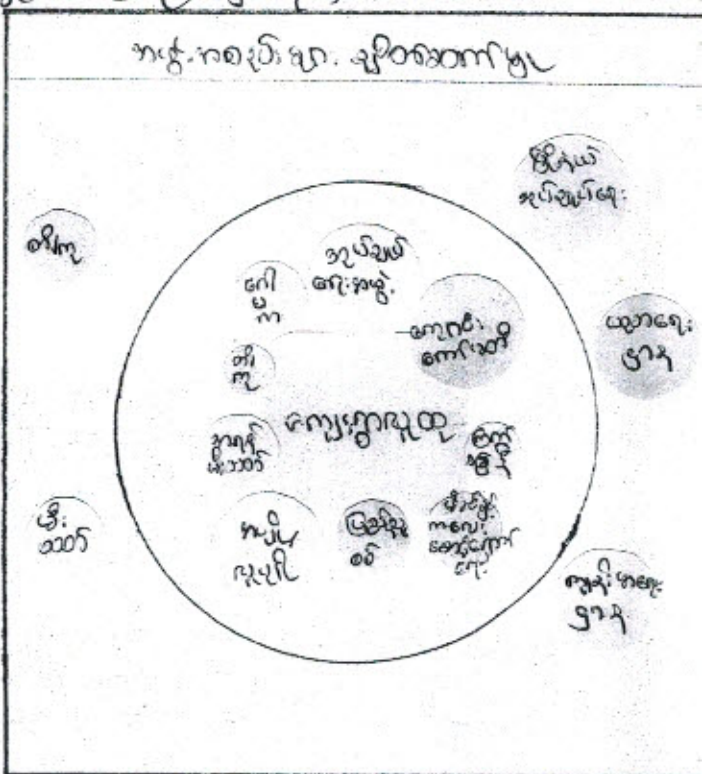 အဖွဲ့အစည်းများ ချိတ်ဆက်မှု
မြို့နယ်
အုပ်ချုပ်ရေး
တီးကု
အုပ်ချုပ်
ရေးအဖွဲ့
ကျောင်း
ကော်မတီ
ပညာရေး
ဌာန
တီး
ကု
ကျေးရွာလူထု
အရန်
မီးသတ်
ကြက်
ခြေနီ
မီး
သတ်
ပြည်သူ့
စစ်
မိခင်နှင့်
ကလေး
စောင့်ရှောက်
ရေး
ကျန်းမာရေး
ဌာန